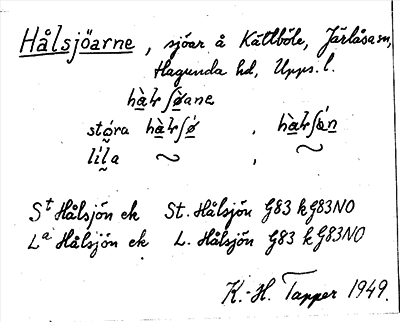 Hålsjöarne, sjöar å Kättböle, Järlåsa sn,
Hagunda hd, Upps. l.
stora
lila ~ , ~
St Hålsjön ek St. Hålsjön G83 k G83NO
La Hålsjön ek L. Hålsjön G83 k G83NO
K.-H. Tapper 1949.